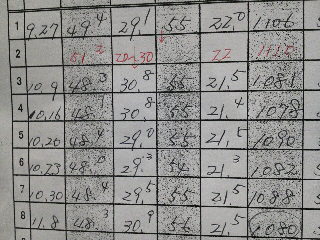 1 9.27 49.4 29.1 55 22.0 1106
2 51.2 20~30 22 1110
3 10.9 48.3 30.8 55 21.5 1081
4 10.16 48.7 30.8 55 21.4 1078
5 10.20 48.4 29.0 55 21.5 1090
6 10.23 48.0 29.3 54 21.3 1082
7 10.30 48.4 29.5 55 21.5 1088
8 11.8 48.3 30.9 56 21.5 1080